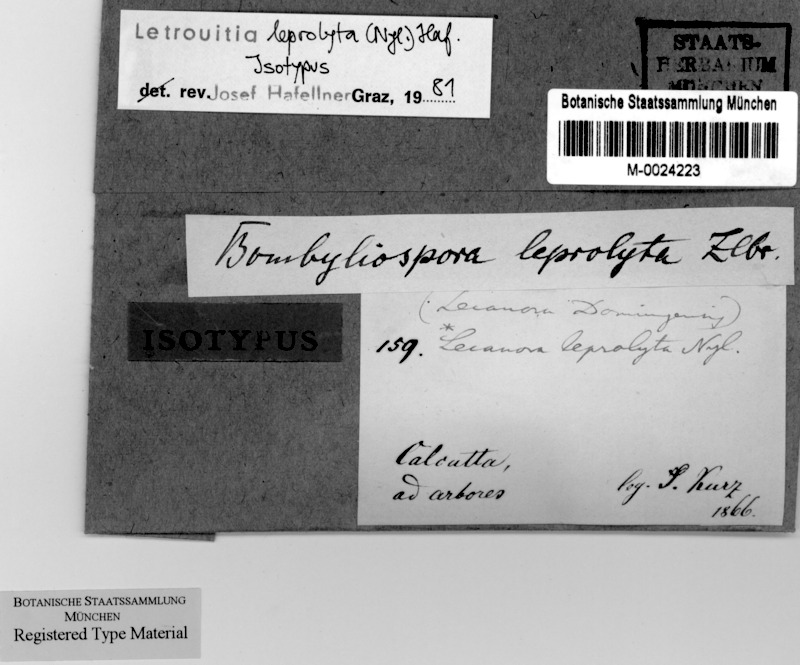 Letrouitia leprolyta (Nyl.) Haf.
Isotypus
det. rev. Josef Hafellner Graz, 19 81
STAATS-
HERBARIUM
MÜNCHEN
Botanische Staatssammlung München
M-0024223
Bombyliospora leprolyta Zlbr.
ISOTYPUS
(Lecanora Domingensis)
159. *Lecanora leprolyta Nyl.
Calcutta,
ad arbores
leg. S. Kurz
1866.
BOTANISCHE STAATSSAMMLUNG
MÜNCHEN
Registered Type Material